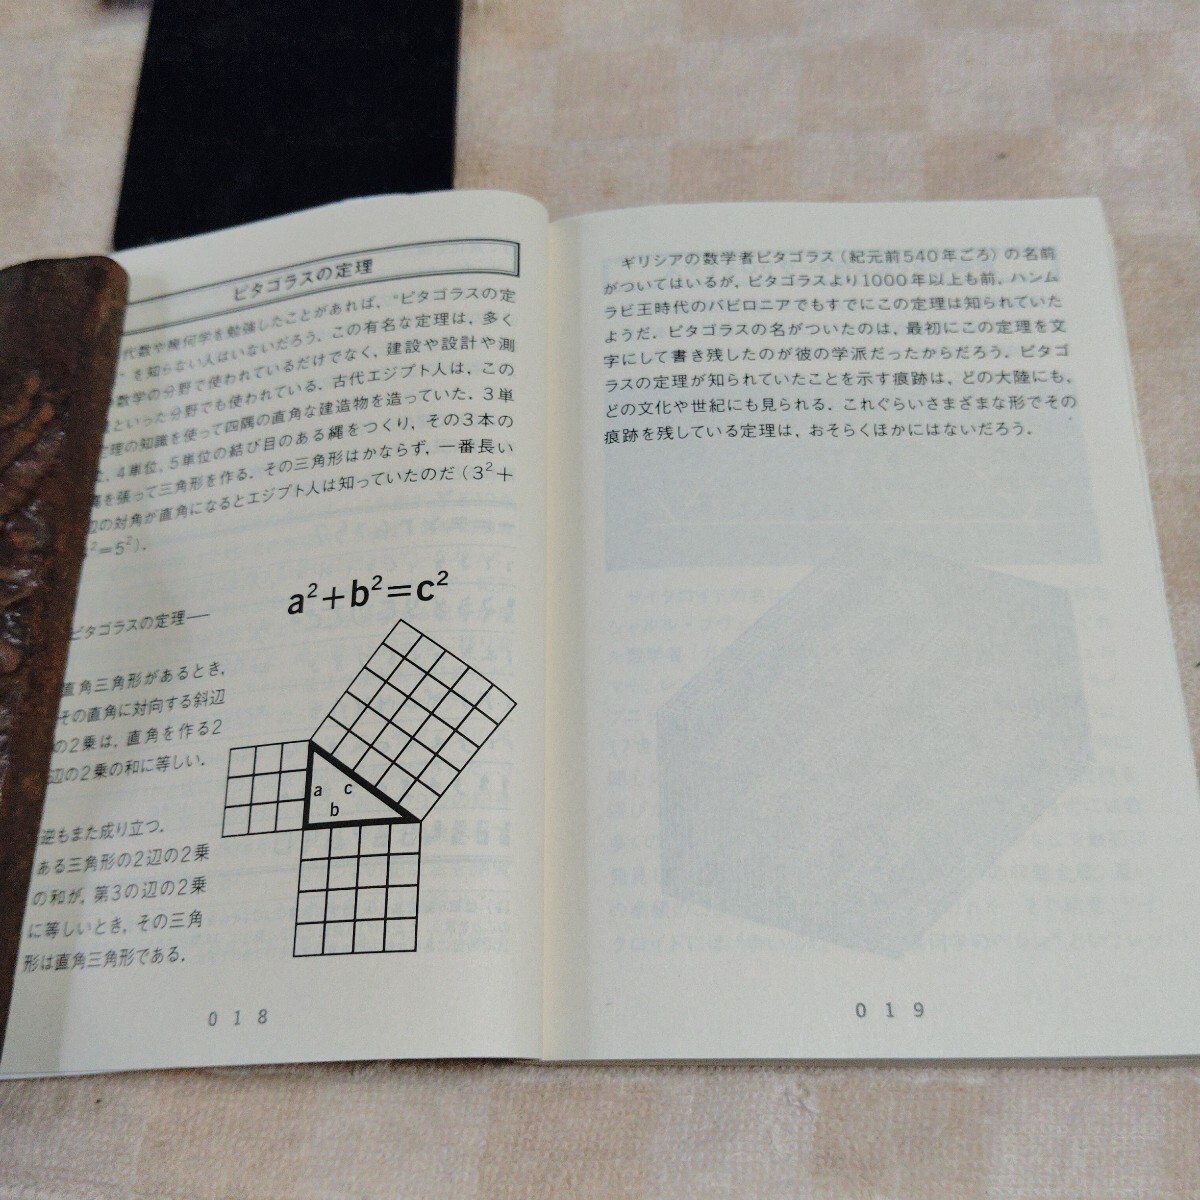 ピタゴラスの定理
代数や幾何学を勉強したことがあれば，“ピタゴラスの定
を知らない人はいないだろう．この有名な定理は，多く
数学の分野で使われているだけでなく，建設や設計や測
といった分野でも使われている．古代エジプト人は，この
定理の知識を使って四隅の直角な建造物を造っていた．3単
，4単位，5単位の結び目のある縄をつくり，その3本の
を張って三角形を作る．その三角形はかならず，一番長い
辺の対角が直角になるとエジプト人は知っていたのだ（3²＋
²＝5²）．
a²+b²=c²
ピタゴラスの定理──
直角三角形があるとき，
その直角に対向する斜辺
の2乗は，直角を作る2
辺の2乗の和に等しい．
逆もまた成り立つ．
ある三角形の2辺の2乗
の和が，第3の辺の2乗
に等しいとき，その三角
形は直角三角形である．
a
c
b
018
ギリシアの数学者ピタゴラス（紀元前540年ごろ）の名前
がついてはいるが，ピタゴラスより1000年以上も前，ハンム
ラビ王時代のバビロニアでもすでにこの定理は知られていた
ようだ．ピタゴラスの名がついたのは，最初にこの定理を文
字にして書き残したのが彼の学派だったからだろう．ピタゴ
ラスの定理が知られていたことを示す痕跡は，どの大陸にも，
どの文化や世紀にも見られる．これぐらいさまざまな形でその
痕跡を残している定理は，おそらくほかにはないだろう．
019